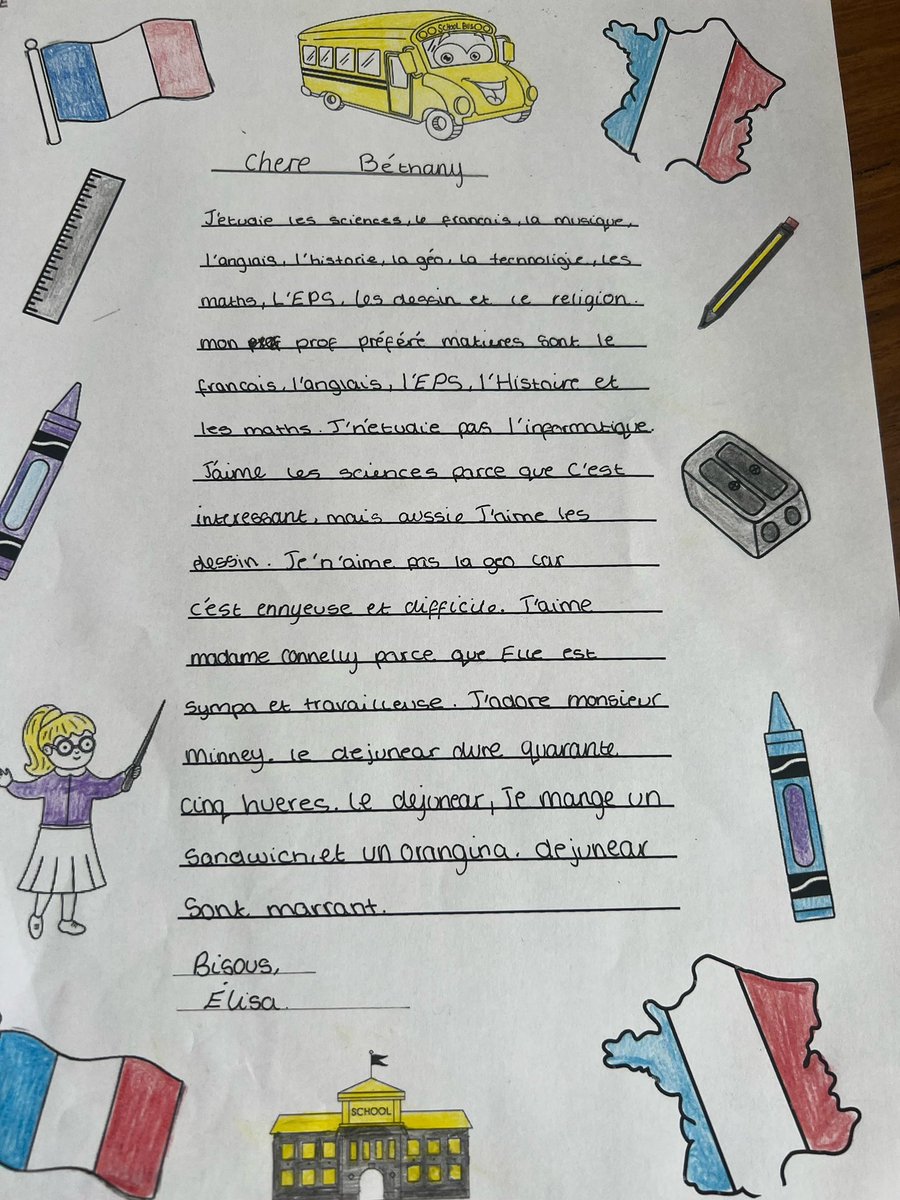 SCHOOL BUS
Chere Béthany
J'étudie les sciences, le francais, la musique,
l'anglais, l'historie, la géo, la technoligie, les
maths, L'EPS, les dessin et le religion.
mon prof préféré matieres sont le
francais, l'anglais, l'EPS, l'Histoire et
les maths. J'n'etudie pas l'informatique.
J'aime les sciences parce que C'est
interessant, mais aussie J'aime les
dessin. Je'n'aime pas la geo car
c'est ennyeuse et difficile. J'aime
madame Connelly parce que Elle est
sympa et travailleuse. J'adore monsieur
Minney. le dejunear dure quarante
cinq hueres. le dejunear, Je mange un
Sandwich, et un orangina. dejunear
Sont marrant.
Bisous,
Élisa.
SCHOOL